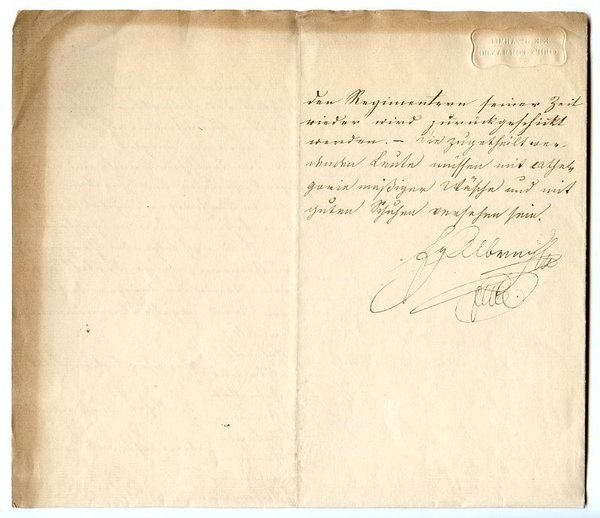 den Regimentern seiner Zeit
wieder wird zurückgeschickt
werden. – Die zugetheilt wer-
denden Leute müssen mit cathe-
gorie mäßiger Wäsche und mit
guten Schuhen versehen sein.
Albrecht